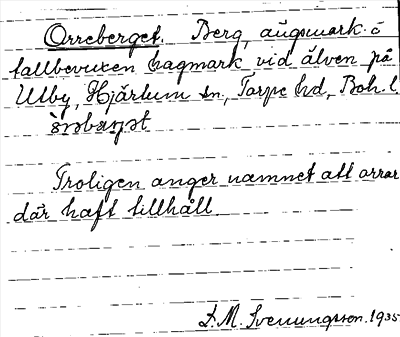 Orreberget. Berg, ängsmark o
tallbevuxen hagmark vid älven på
Utby, Hjärtum sn, Torpe hd, Boh. l

Troligen anger namnet att orrar
där haft tillhåll
S. M. Svenungsson. 1935